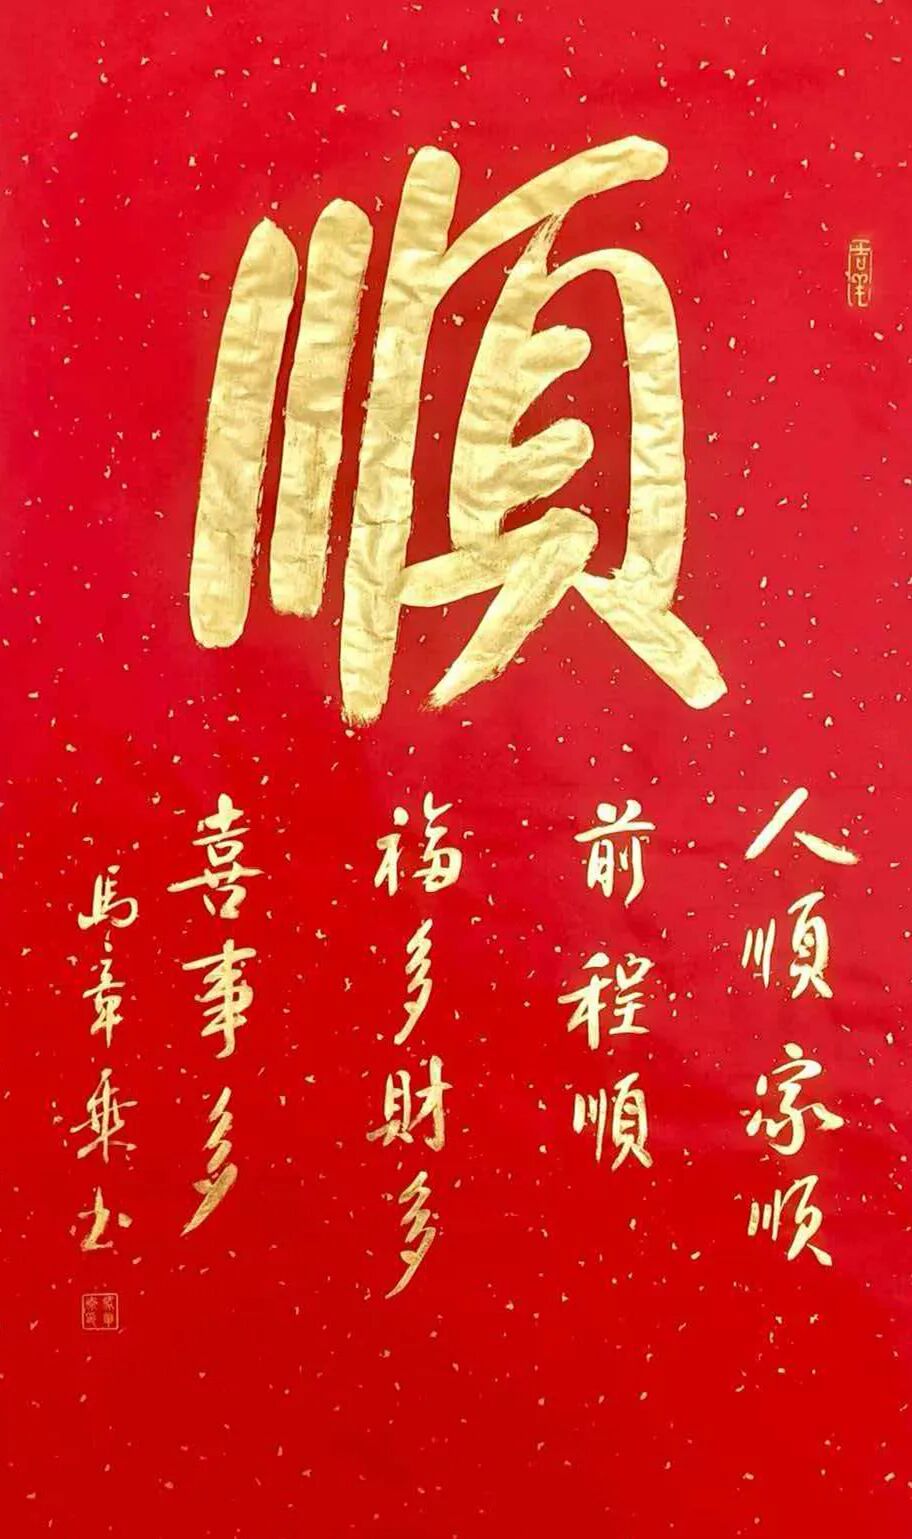 順
人順家順
前程順
福多財多
喜事多
馬章乗书